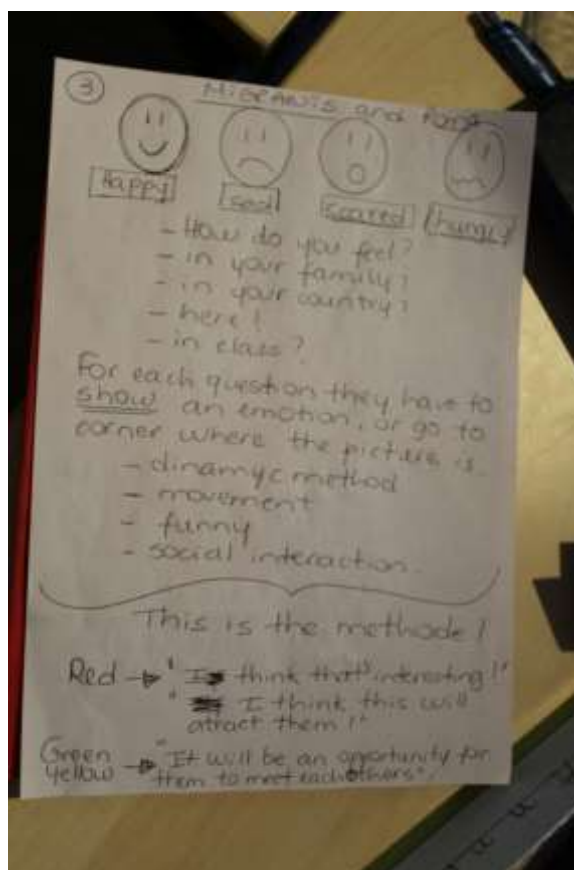 3
MIGRANTS and
Happy
sad
scared
hungry
- How do you feel?
- in your family?
- in your country?
- here?
- in class?
For each question they have to
show an emotion, or go to
corner where the picture is.
- dinamyc method
- movement
- funny
- social interaction.
This is the methode!
Red → " I think that's interesting!"
" I think this will
atract them!"
Green
Yellow → "It will be an opportunity for
them to meet eachothers".